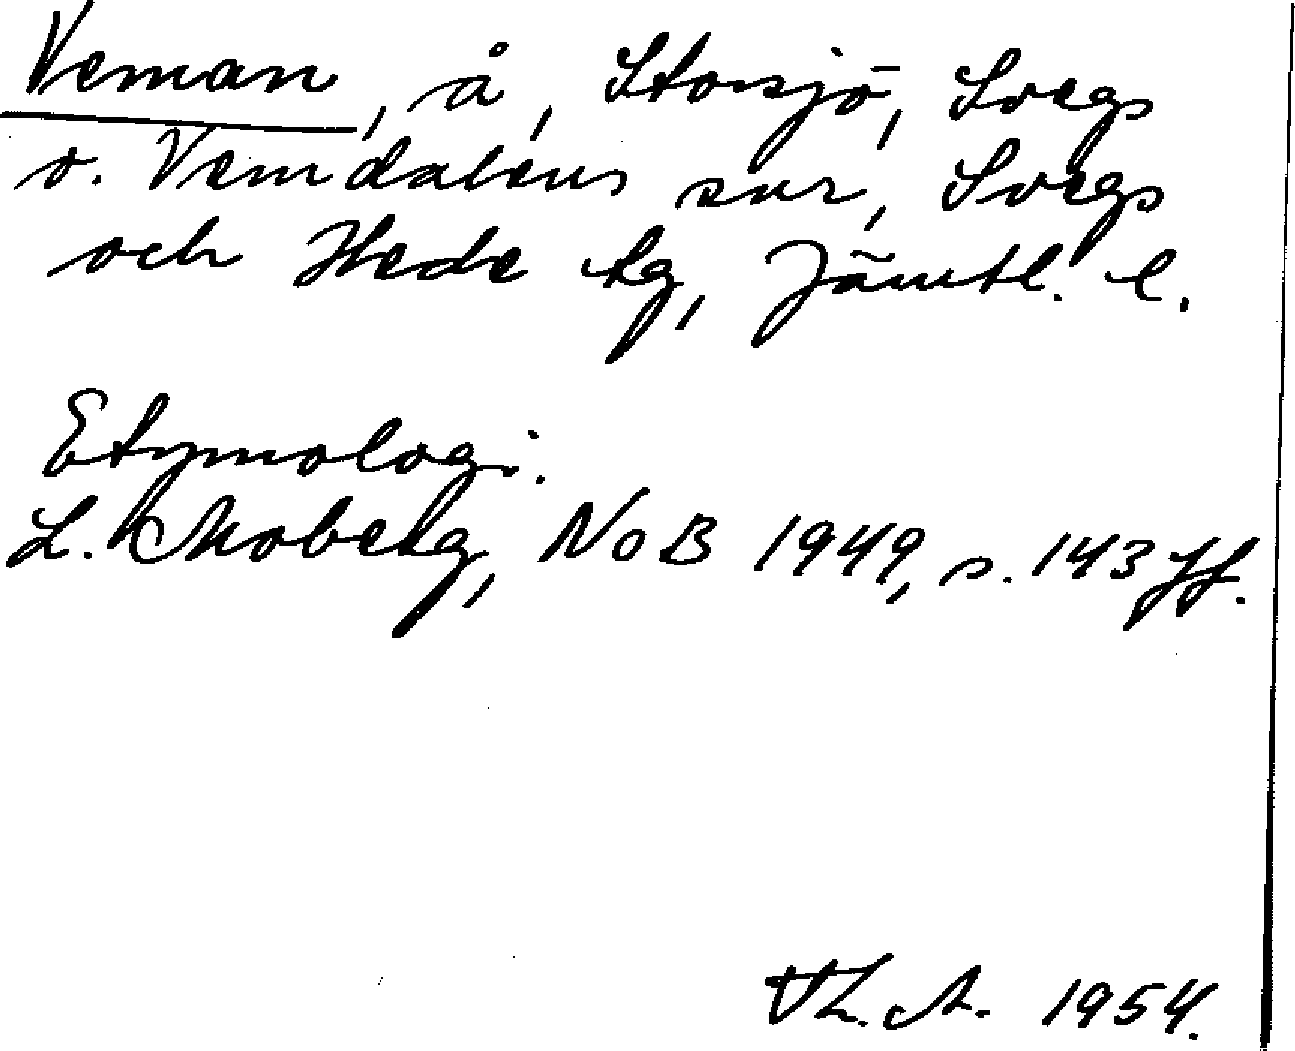 Veman, å, Storsjö, Svegs
o. Vemdalens snr, Svegs
och Hede tg, Jämtl. l.
Etymologi.
L. Moberg, NoB 1949, s. 143 ff.
Th. A. 1954.